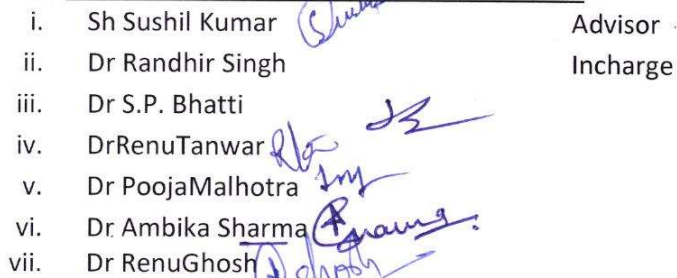 i. Sh Sushil Kumar Advisor
ii. Dr Randhir Singh Incharge
iii. Dr S.P. Bhatti
iv. DrRenuTanwar
v. Dr PoojaMalhotra
vi. Dr Ambika Sharma
vii. Dr RenuGhosh